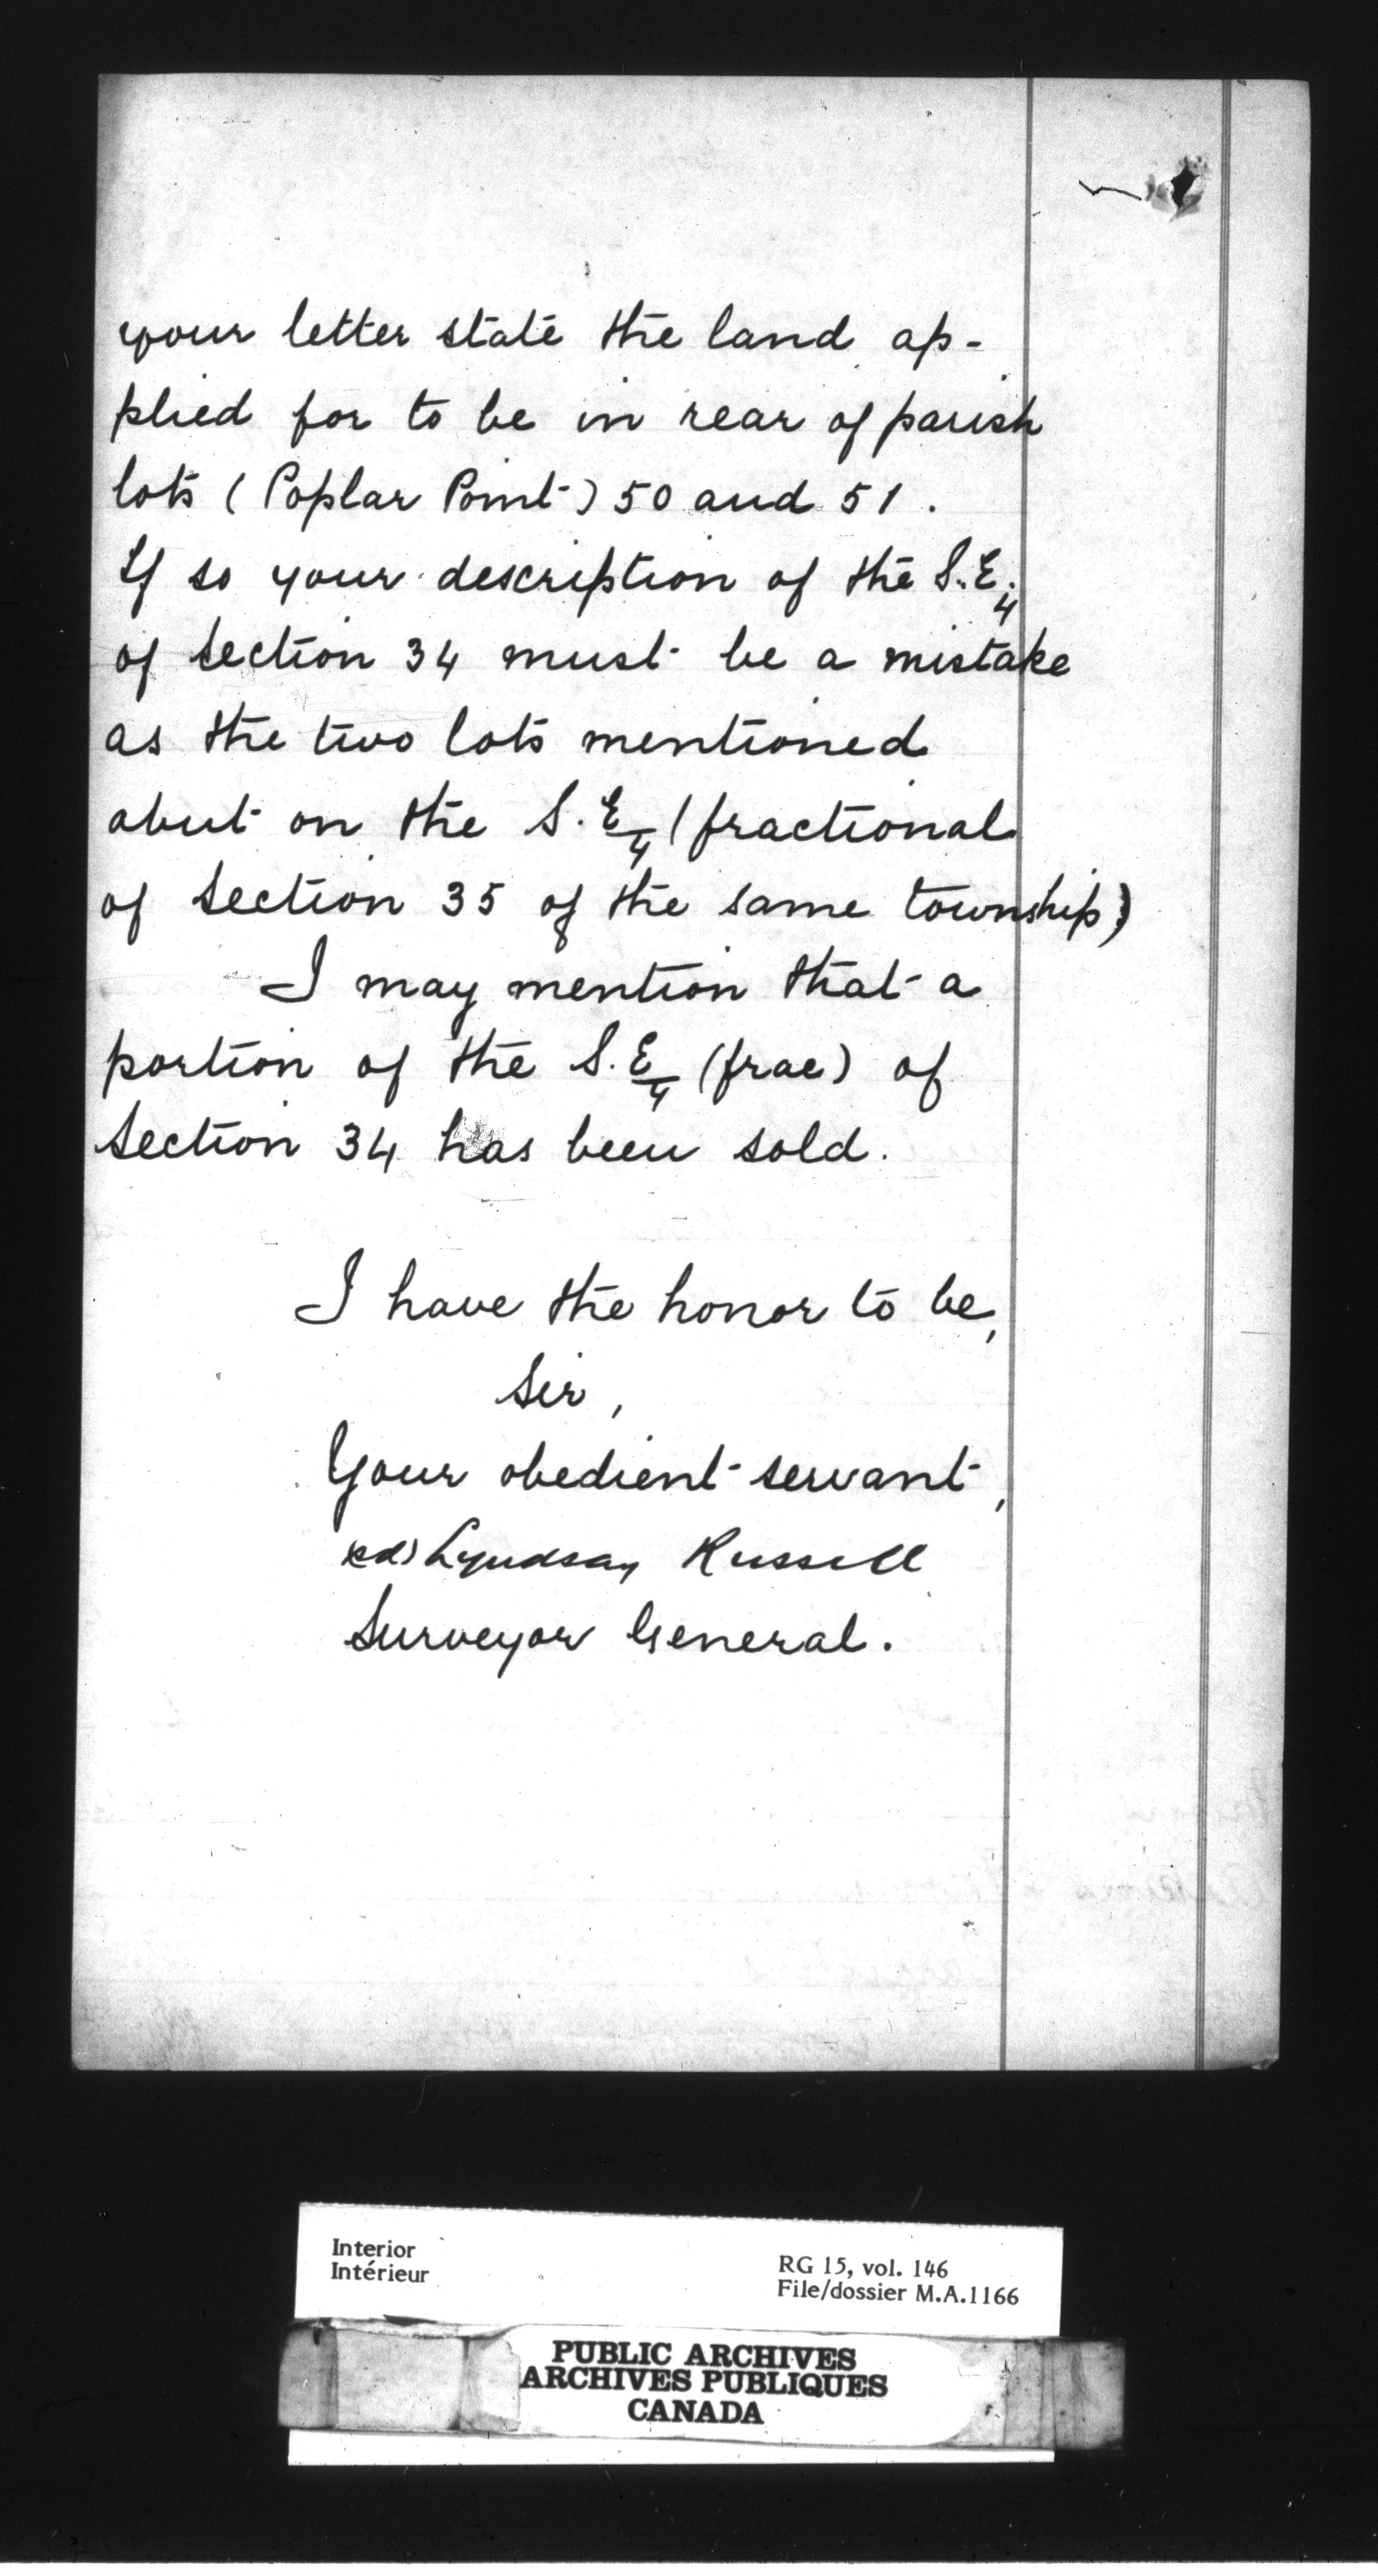 your letter state the land ap-
plied for to be in rear of parish
lots (Poplar Point) 50 and 51.
If so your description of the S.E.¼
of Section 34 must be a mistake
as the two lots mentioned
abut on the S.E¼ (fractional
of Section 35 of the same township)
I may mention that a
portion of the S.E¼ (frac) of
Section 34 has been sold.
I have the honor to be,
Sir,
Your obedient servant,
Lyndsay Russell
Surveyor General.
Interior
Intérieur
RG 15, vol. 146
File/dossier M.A.1166
PUBLIC ARCHIVES
ARCHIVES PUBLIQUES
CANADA